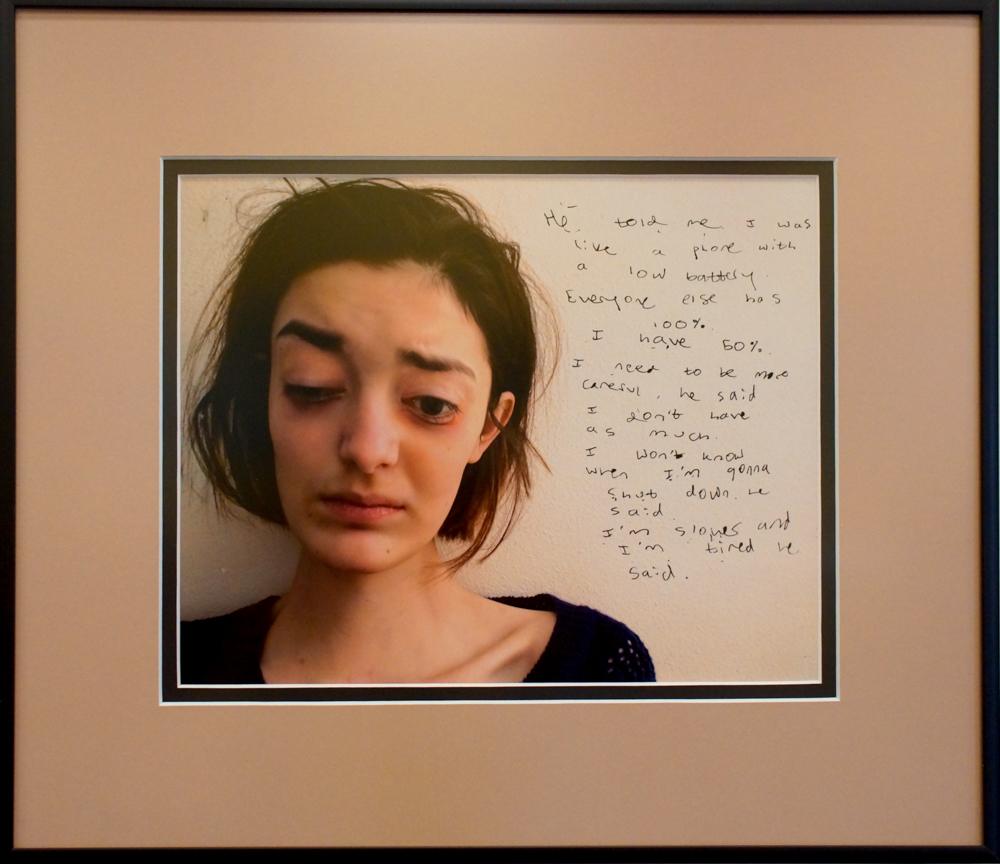 He told me I was
like a phone with
a low battery.
Everyone else has
100%.
I have 50%.
I need to be more
careful, he said
I don't have
as much.
I won't know
when I'm gonna
shut down he
said.
I'm slower and
I'm tired he
said.